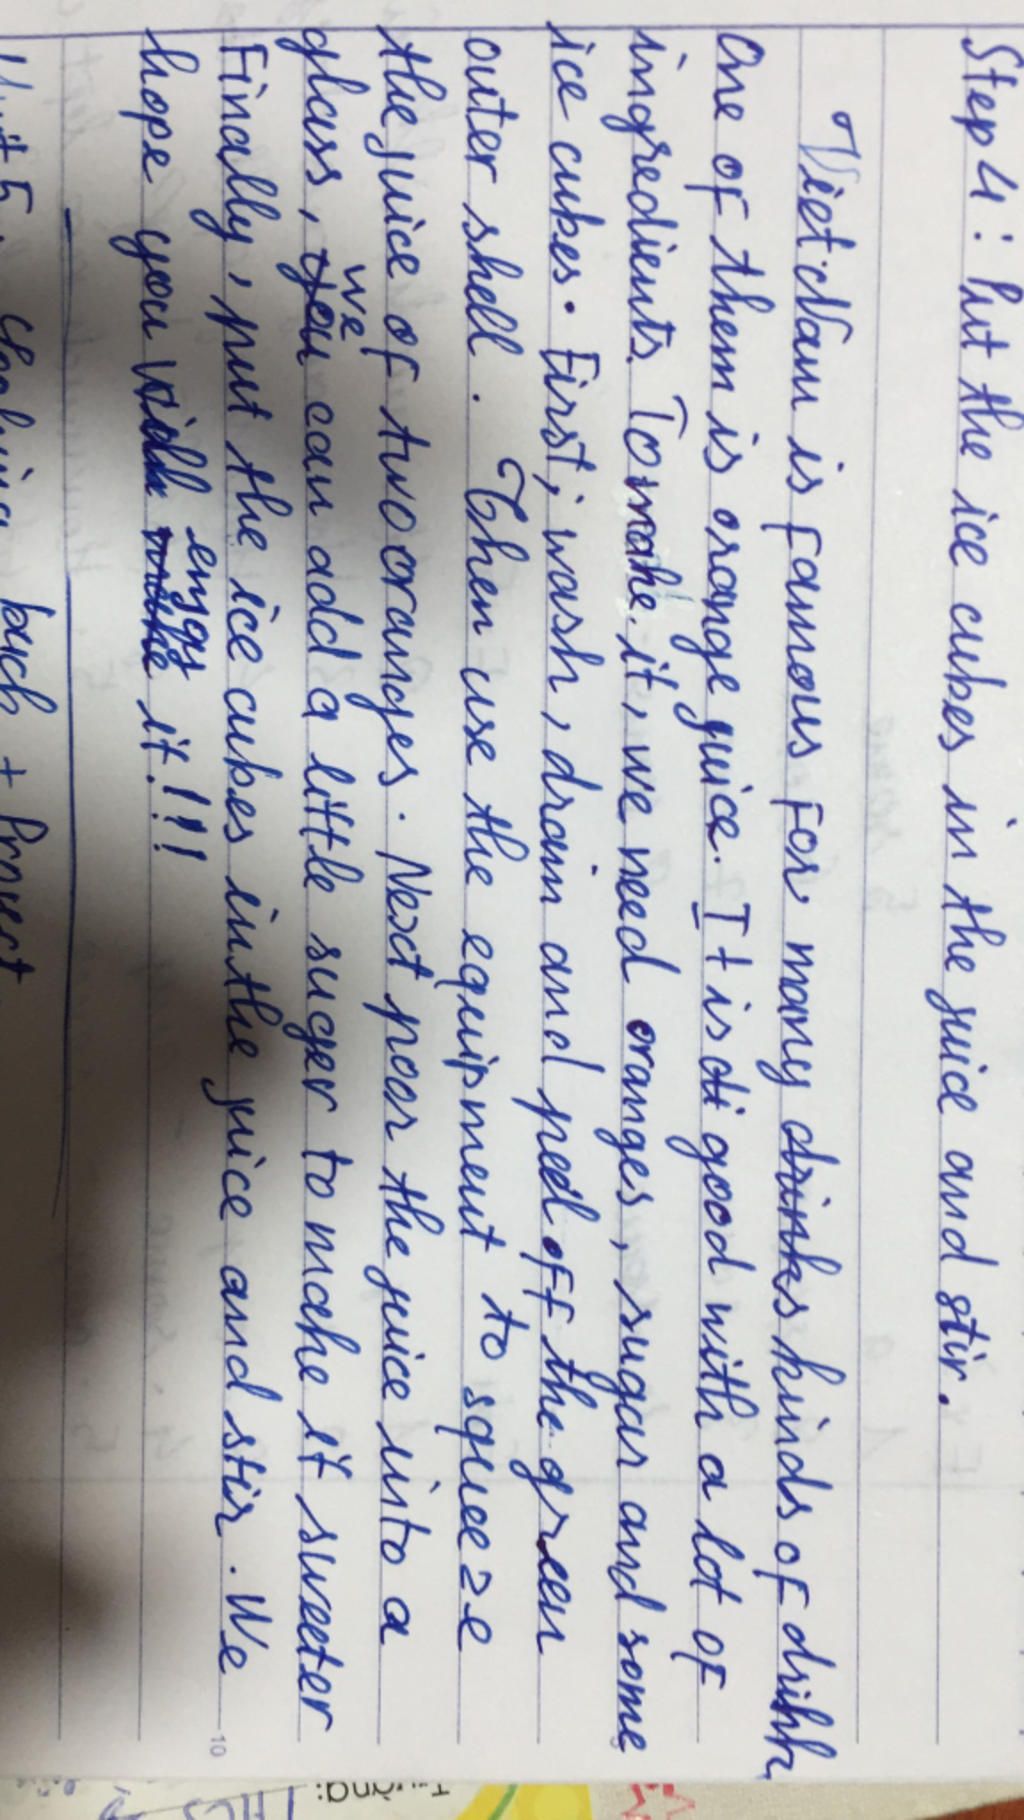 Step 4: Put the ice cubes in the juice and stir.
Viet Nam is famous for many drinks kinds of drink
One of them is orange juice. It is di good with a lot of
ingredients. To make it, we need oranges, sugar and some
ice cubes. First, wash, drain and peel off the green
outer shell. Then use the equipment to squeeze
the juice of two oranges. Next poor the juice into a
we
glass, you can add a little suger to make it sweeter
Finally, put the ice cubes in the juice and stir. We
enjoy
hope you will make it!!!
Unit 5: Looking back + Project
10